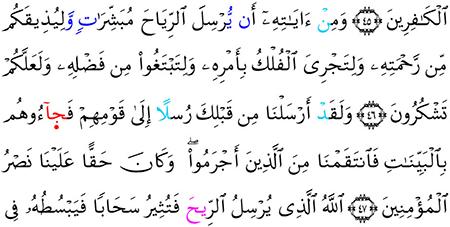 ٱلْكَـٰفِرِينَ ﴿٤٥﴾ وَمِنْ ءَايَـٰتِهِۦٓ أَن يُرْسِلَ ٱلرِّيَاحَ مُبَشِّرَٰتٍ وَلِيُذِيقَكُم
مِّن رَّحْمَتِهِۦ وَلِتَجْرِىَ ٱلْفُلْكُ بِأَمْرِهِۦ وَلِتَبْتَغُوا۟ مِن فَضْلِهِۦ وَلَعَلَّكُمْ
تَشْكُرُونَ ﴿٤٦﴾ وَلَقَدْ أَرْسَلْنَا مِن قَبْلِكَ رُسُلًا إِلَىٰ قَوْمِهِمْ فَجَآءُوهُم
بِٱلْبَيِّنَـٰتِ فَٱنتَقَمْنَا مِنَ ٱلَّذِينَ أَجْرَمُوا۟ ۖ وَكَانَ حَقًّا عَلَيْنَا نَصْرُ
ٱلْمُؤْمِنِينَ ﴿٤٧﴾ ٱللَّهُ ٱلَّذِى يُرْسِلُ ٱلرِّيحَ فَتُثِيرُ سَحَابًا فَيَبْسُطُهُۥ فِى